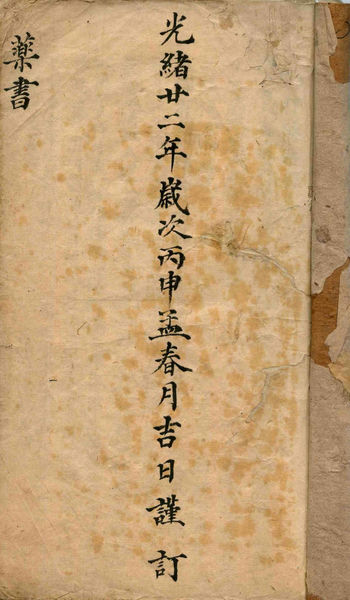 光緒廿二年歲次丙申孟春月吉日謹訂
藥書